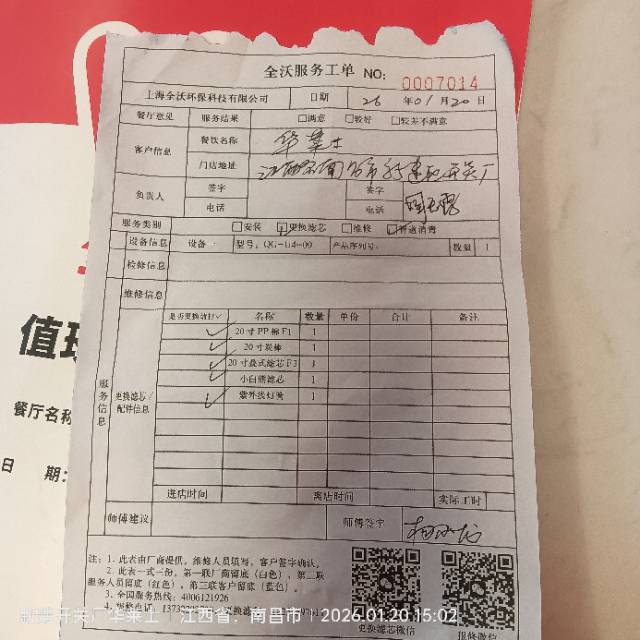 全沃服务工单 NO: 0007014
上海全沃环保科技有限公司 日期 26 年 01 月 20 日
餐厅意见 服务结果 □满意 □较好 □较差不满意
客户信息 餐饮名称 华莱士
门店地址 江西省南昌市新建区开关厂
负责人 签字 签字
电话 电话
服务类别 □安装 □更换滤芯 □维修 □管道消毒
设备信息 设备 型号: 产品序列号: 数量 1
检修信息
维修信息
是否更换请打✓ 名称 数量 单价 合计 备注
✓ 20寸PP棉F1 1
✓ 20寸炭棒 1
✓ 20寸叠式滤芯F3 1
✓ 小白鲸滤芯 1
✓ 紫外线灯管 1
服务信息
更换滤芯/配件信息
进店时间 离店时间 实际工时
师傅建议 师傅签字
注: 1. 此表由厂商提供, 维修人员填写, 客户签字确认。
2. 此表一式一份, 第一联厂商留底（白色）, 第二联
服务人员留底（红色）, 第三联客户留底（蓝色）。
3. 全国服务热线: 4006121926
更换滤芯微信
报修微信
值班
餐厅名称
日 期:
新建开关厂华莱士 | 江西省, 南昌市 | 2026.01.20 15:02